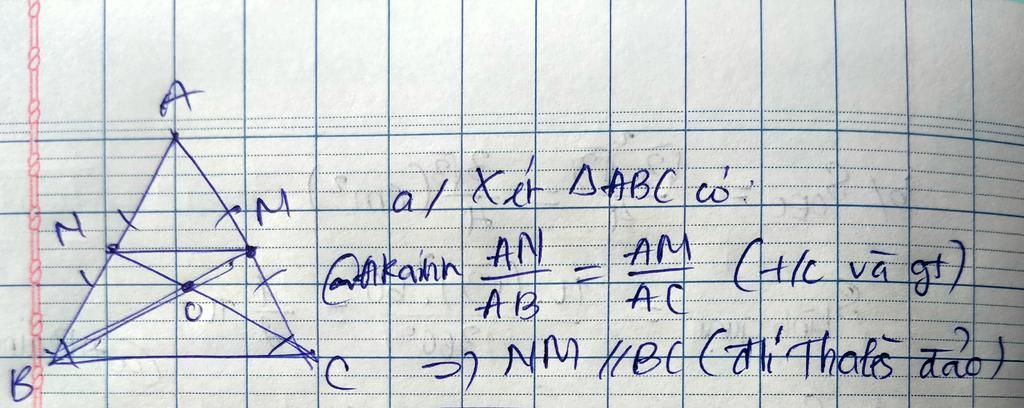 A
N
M
O
B
C
a/ Xét ΔABC có:
AN/AB = AM/AC (t/c và gt)
=> NM // BC (đlí Thalès đảo)